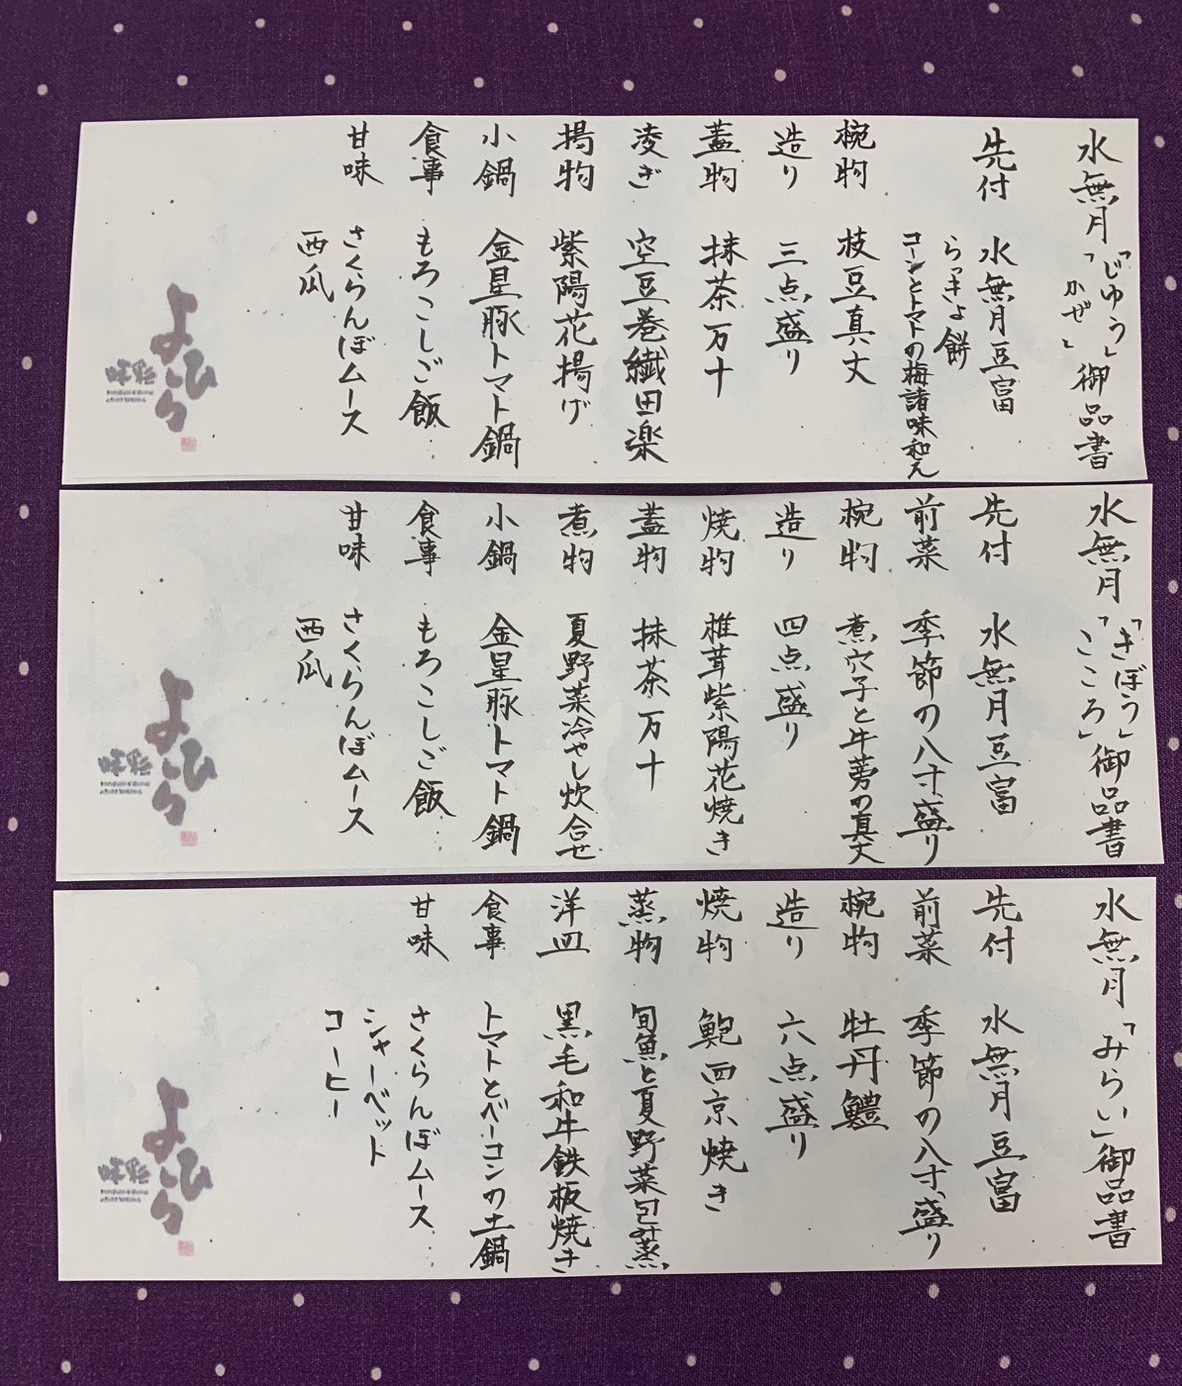 水無月「じゆう」「かぜ」御品書
先付 水無月豆富
らっきょ餅
コーンとトマトの梅諸味和え
椀物 枝豆真丈
造り 三点盛り
蓋物 抹茶万十
凌ぎ 空豆巻繊田楽
揚物 紫陽花揚げ
小鍋 金星豚トマト鍋
食事 もろこしご飯
甘味 さくらんぼムース
西瓜
水無月「きぼう」「こころ」御品書
先付 水無月豆富
前菜 季節の八寸盛り
椀物 煮穴子と牛蒡の真丈
造り 四点盛り
焼物 椎茸紫陽花焼き
蓋物 抹茶万十
煮物 夏野菜冷やし炊合せ
小鍋 金星豚トマト鍋
食事 もろこしご飯
甘味 さくらんぼムース
西瓜
水無月「みらい」御品書
先付 水無月豆富
前菜 季節の八寸盛り
椀物 牡丹鱧
造り 六点盛り
焼物 鮑西京焼き
蒸物 旬魚と夏野菜包み蒸
洋皿 黒毛和牛鉄板焼き
食事 トマトとベーコンの土鍋
甘味 さくらんぼムース
シャーベット
コーヒー